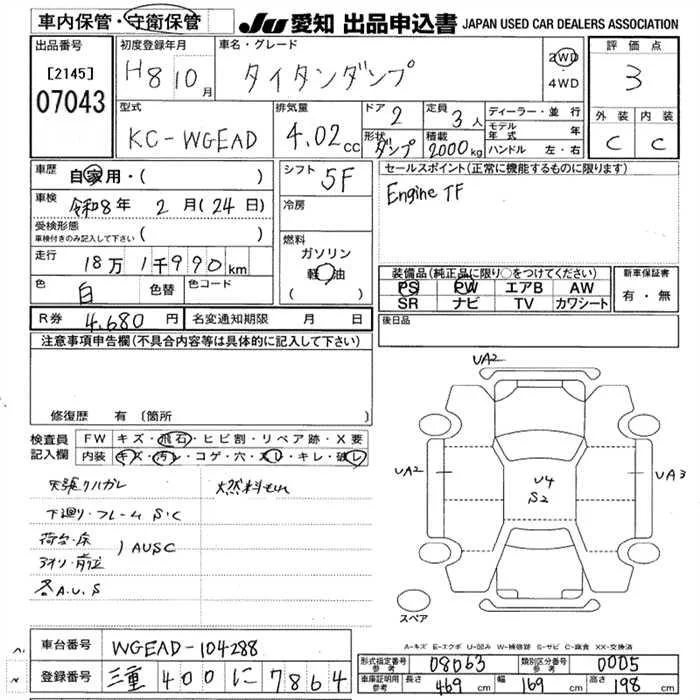 車内保管・守衛保管
JU 愛知 出品申込書 JAPAN USED CAR DEALERS ASSOCIATION
出品番号 [2145] 07043
初度登録年月 H8 10月
車名・グレード タイタンダンプ
2WD 4WD
評価点 3
型式 KC-WGEAD
排気量 4.02 cc
ドア 2
形状 ダンプ
定員 3人
積載 2000kg
ディーラー・並行
モデル年式 年
ハンドル 左・右
外装 C 内装 C
車歴 自家用・( )
車検 令和8年 2月(24日)
受検形態 車検付きのみ記入して下さい ( )
走行 18万1千990km
色 白 色替 色コード
シフト 5F
冷房
燃料 ガソリン 軽油 ( )
セールスポイント(正常に機能するものに限ります)
Engine TF
装備品(純正品に限り○をつけてください)
PS PW エアB AW
SR ナビ TV カワシート
新車保証書 有・無
R券 4,680円 名変通知期限 月 日
後日品
注意事項申告欄(不具合内容等は具体的に記入して下さい)
修復歴 有 〔箇所 〕
検査員記入欄
FW キズ・飛石・ヒビ割・リペア跡・X要
内装 キズ・汚レ・コゲ・穴・スレ・キレ・破レ
天張クハガレ
下廻り・フレーム S・C
荷台・床
AUSC
各A.U.S
UA2
UA2
UA3
U4
S2
スペア
A-キズ E-エクボ U-凹み W-補修跡 S-サビ C-腐食 XX-交換済
車台番号 WGEAD-104288
登録番号 三重 400 に 7864
形式指定番号 参考 08063
類別区分番号 参考 0005
車庫証明用 参考 長さ 469cm 幅 169cm 高さ 198cm